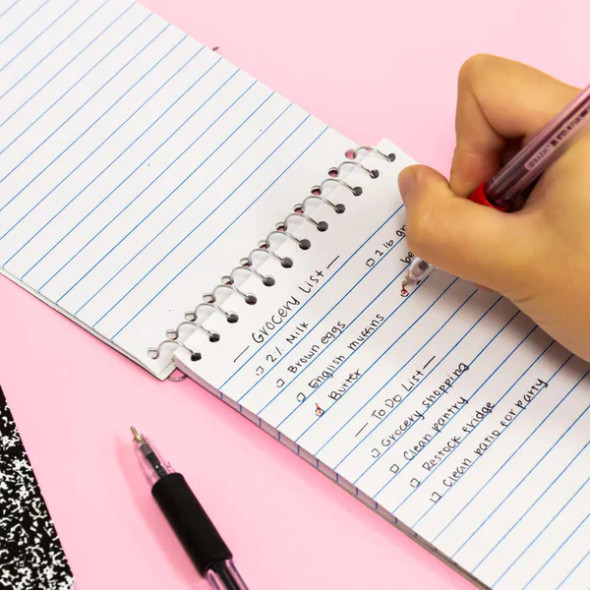 — Grocery List —
2% Milk
Brown eggs
English muffins
Butter
1 lb
— To Do List —
Grocery shopping
Clean pantry
Restock fridge
Clean patio for party